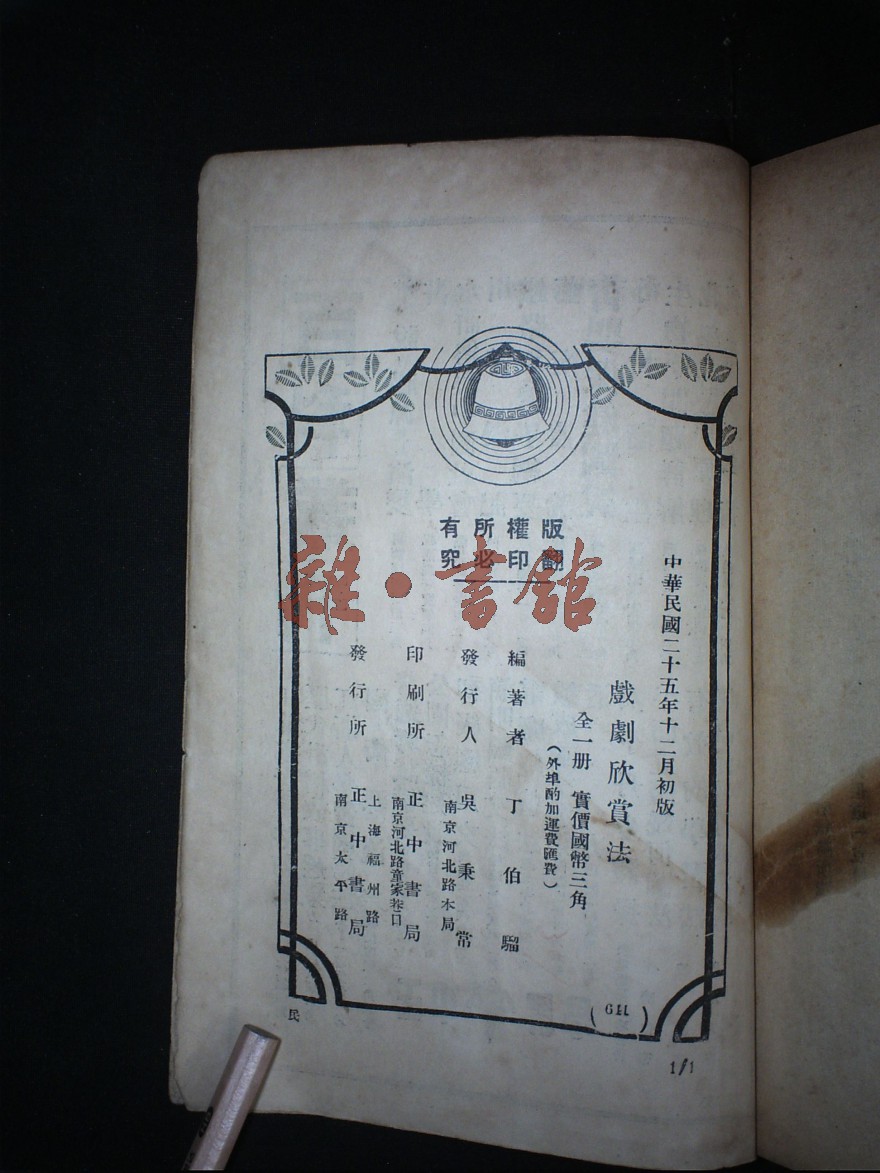 版權所有
翻印必究
中華民國二十五年十二月初版
戲劇欣賞法
全一册 實價國幣三角
(外埠酌加運費匯費)
編著者 丁伯騮
發行人 吳秉常
南京河北路本局
印刷所 正中書局
南京河北路童家巷口
發行所 正中書局
上海福州路
南京太平路
(611)
民
1/1
雜·書館